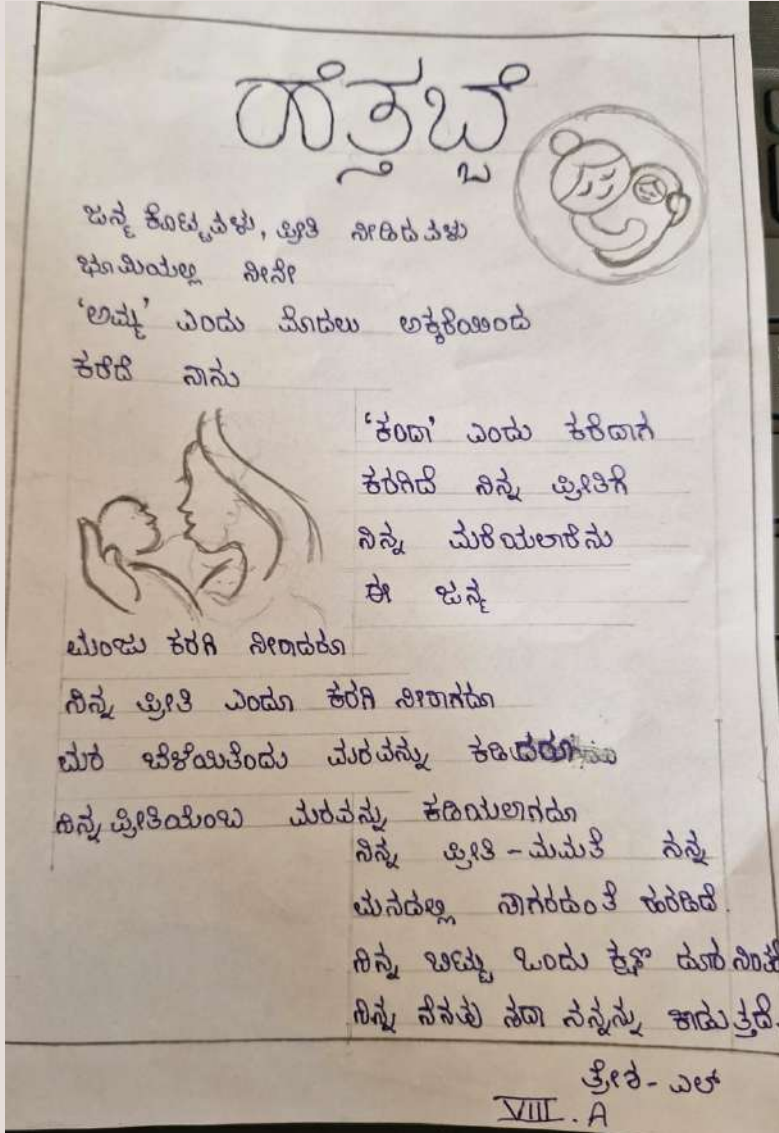 ಹೆತ್ತಬ್ಬೆ
ಜನ್ಮ ಕೊಟ್ಟವಳು, ಪ್ರೀತಿ ನೀಡಿದವಳು
ಭೂಮಿಯಲ್ಲಿ ನೀನೇ
'ಅಮ್ಮ' ಎಂದು ಮೊದಲು ಅಕ್ಕರೆಯಿಂದ
ಕರೆದೆ ನಾನು
'ಕಂದಾ' ಎಂದು ಕರೆದಾಗ
ಕರಗಿದೆ ನಿನ್ನ ಪ್ರೀತಿಗೆ
ನಿನ್ನ ಮರೆಯಲಾರೆನು
ಈ ಜನ್ಮ
ಮಂಜು ಕರಗಿ ನೀರಾದರೂ
ನಿನ್ನ ಪ್ರೀತಿ ಎಂದೂ ಕರಗಿ ನೀರಾಗದೂ
ಮರ ಬೆಳೆಯಿತೆಂದು ಮರವನ್ನು ಕಡಿದರೂ
ನಿನ್ನ ಪ್ರೀತಿಯೆಂಬ ಮರವನ್ನು ಕಡಿಯಲಾಗದೂ
ನಿನ್ನ ಪ್ರೀತಿ - ಮಮತೆ ನನ್ನ
ಮನದಲ್ಲಿ ಸಾಗರದಂತೆ ಹರಡಿದೆ.
ನಿನ್ನ ಬಿಟ್ಟು ಒಂದು ಕ್ಷಣ ದೂರ ನಿಂತರೆ
ನಿನ್ನ ನೆನಪು ಸದಾ ನನ್ನನ್ನು ಕಾಡುತ್ತದೆ.
ತ್ರೇಶ - ಎಲ್
VIII. A